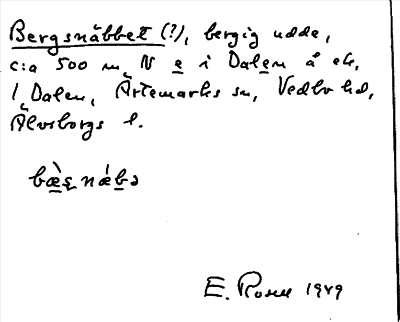 Bergsnäbbet (?), bergig udde,
c:a 500 m N e i Dalen å ek,
1 Dalen, Ärtemarks sn, Vedbo hd,
Älvsborgs l.
E. Rosell 1949